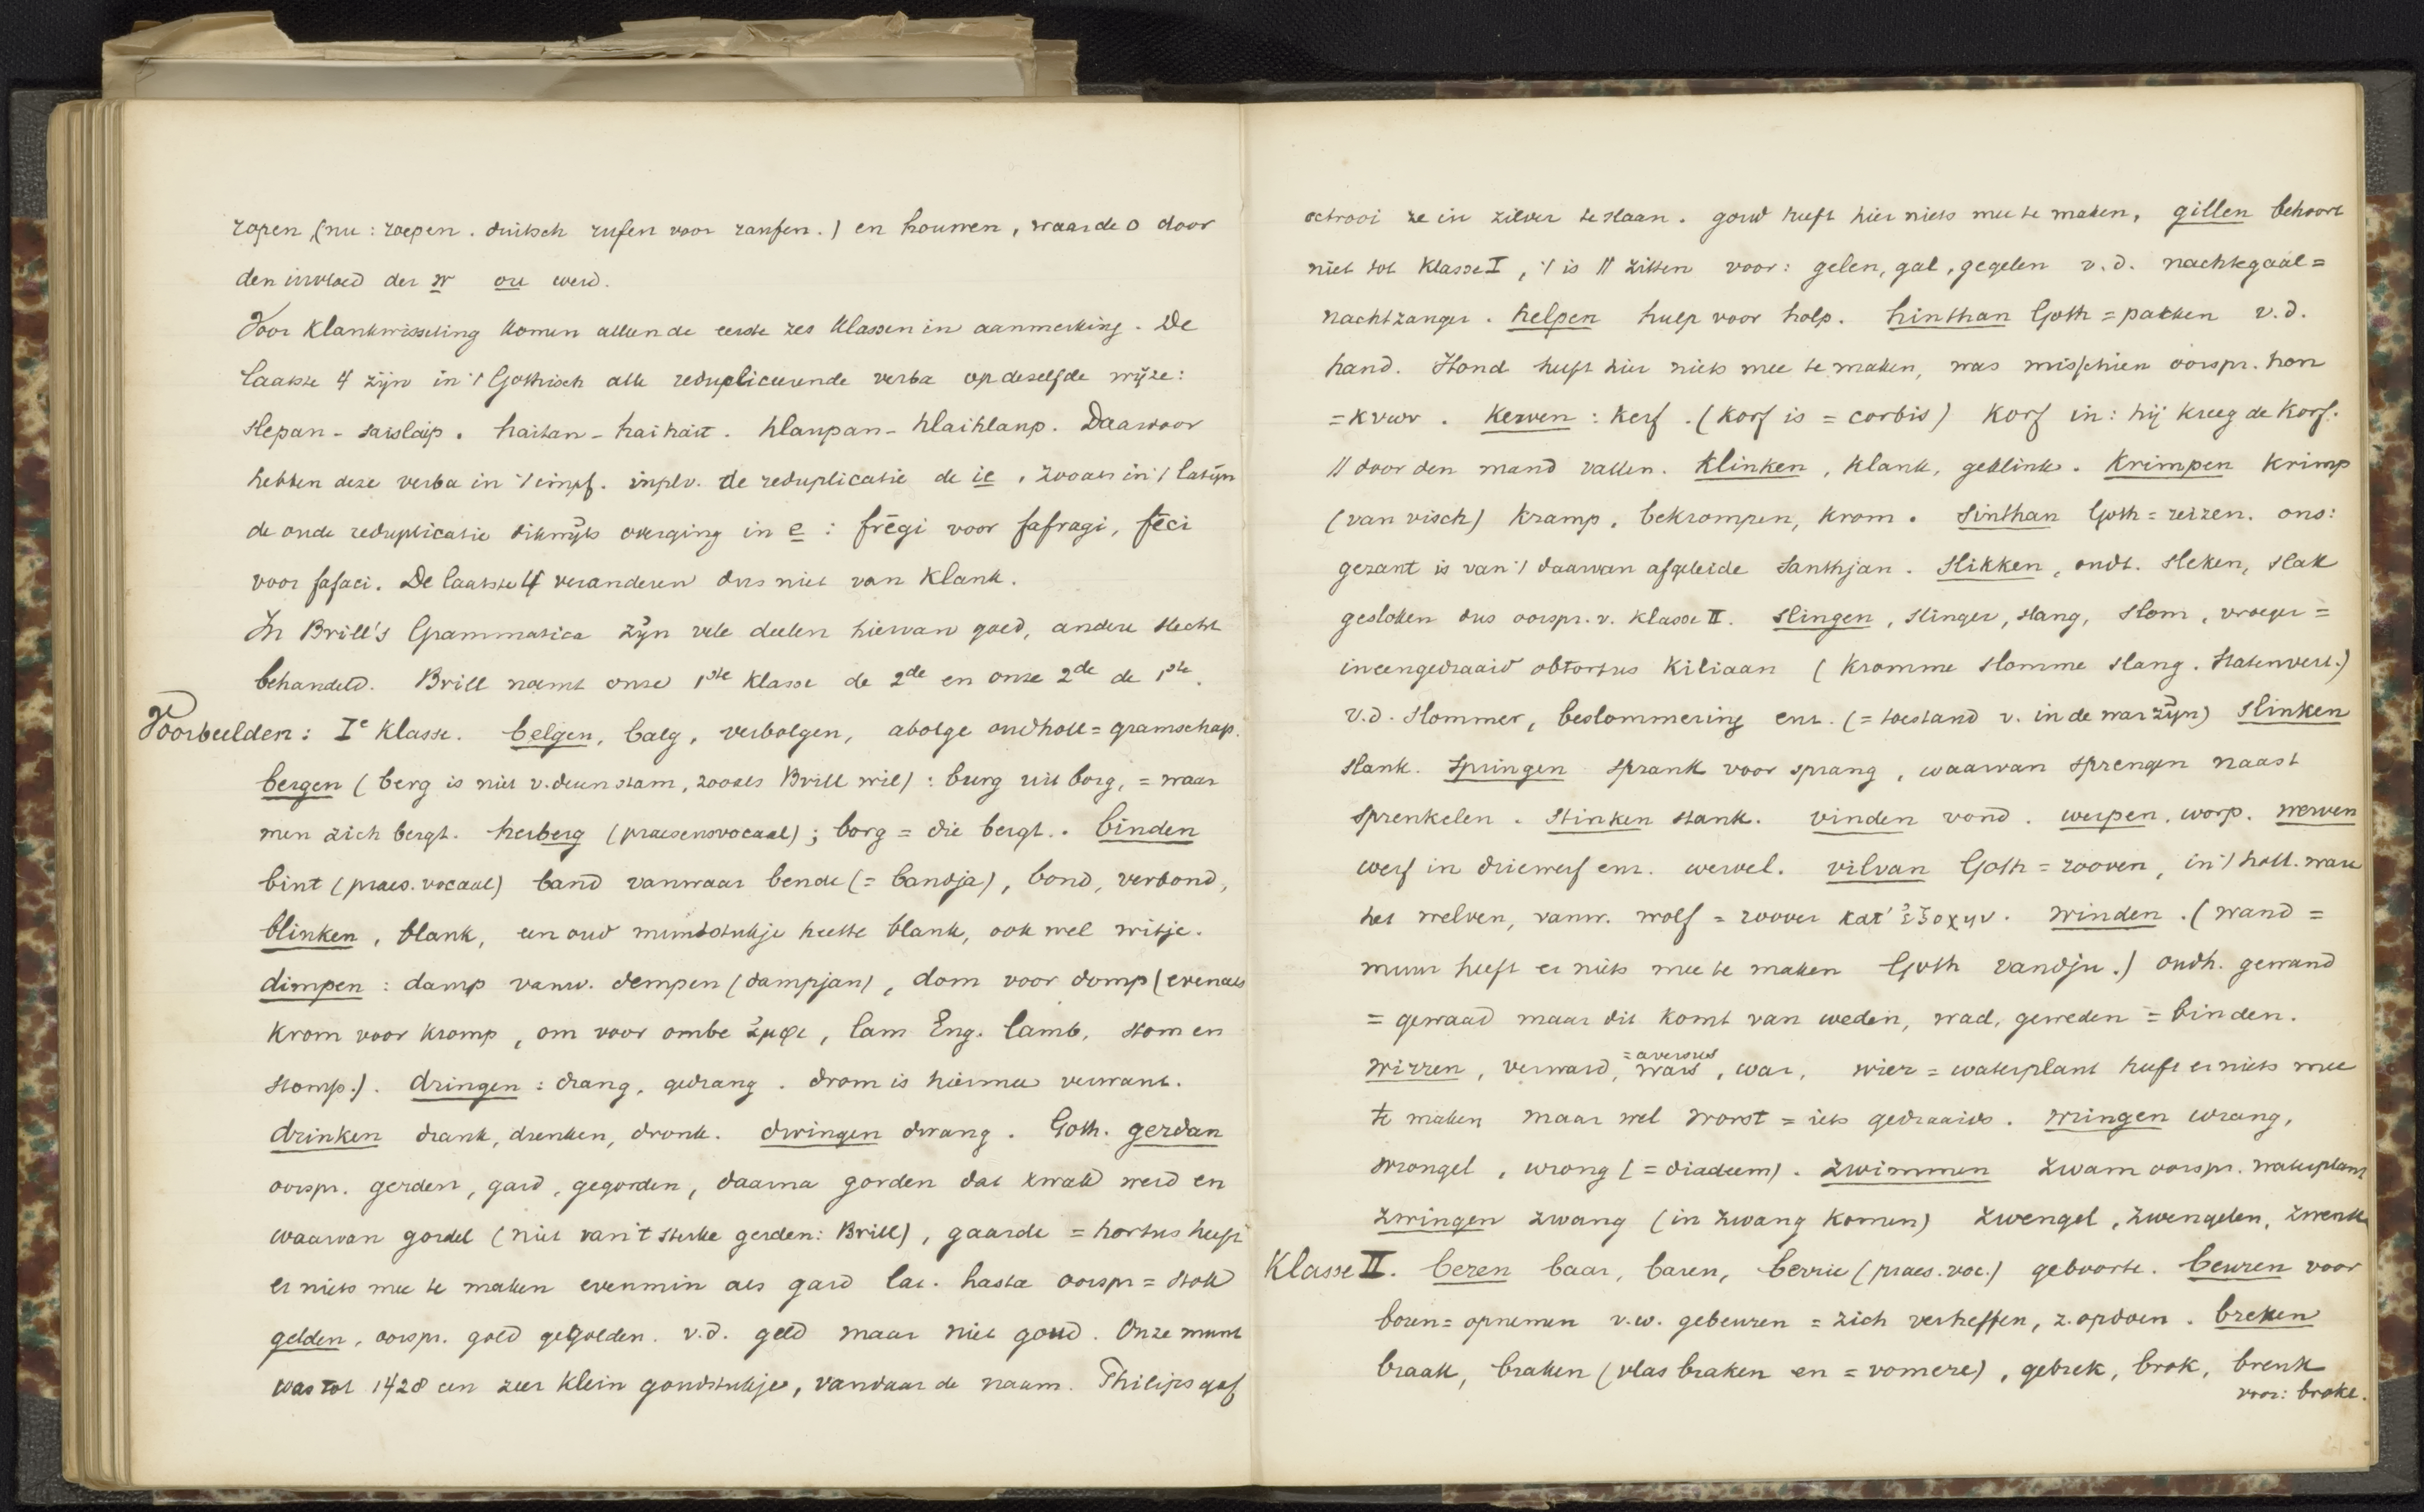 ropen (nu: roepen. duitsch rufen voor raufen.) en houwen, waar de o door
den invloed der w ou werd.
Voor klankwisseling komen alleen de eerste zes klassen in aanmerking. De
laatste 4 zijn in 't Gothisch alle reduplicerende verba op dezelfde wijze:
slepan - saislaip. haitan - haihait. hlaupan - hlaihlaup. Daarvoor
hebben deze verba in 't impf. inplv. de reduplicatie de ie, zooals in 't latijn
de oude reduplicatie dikwijls overging in e: frēgi voor fafragi, fēci
voor fafaci. De laatste 4 veranderen dus niet van klank.
In Brill's Grammatica zijn vele deelen hiervan goed, andere slecht
behandeld. Brill noemt onze 1ste klasse de 2de en onze 2de de 1ste.
Voorbeelden: Ie Klasse. belgen, balg, verbolgen, abolge oudholl = gramschap.
bergen (berg is niet v. deen stam, zooals Brill wil): burg uit borg, = waar
men zich bergt. herberg (praesensvocaal); borg = die bergt. binden
bint (praes. vocaal) band vanwaar bende (= bandja), bond, verbond,
blinken, blank, een oud muntstukje heette blank, ook wel witje.
dimpen: damp vanw. dempen (dampjan), dom voor domp (evenals
krom voor kromp, om voor ombe ἀμφι, lam Eng. lamb, stom en
stomp.). dringen: drang, gedrang. drom is hiermee verwant.
drinken drank, drenken, dronk. dwingen dwang. Goth. gerdan
oorspr. gerden, gard, gegorden, daarna gorden dat zwak werd en
waarvan gordel (niet van 't sterke gerden: Brill), gaarde = hortus heeft
er niets mee te maken evenmin als gard lat. hasta oorspr = stok
gelden, oorspr. gold gegolden. v.d. geld maar niet goud. Onze munt
was tot 1428 een zeer klein goudstukje, vandaar de naam. Philips gaf
octrooi ze in zilver te slaan. goud heeft hier niets mee te maken, gillen behoort
niet tot Klasse I, 't is // zitten voor: gelen, gal, gegelen v.d. nachtegaal =
nachtzanger. helpen hulp voor holp. hinthan Goth = pakken v.d.
hand. Hond heeft hier niets mee te maken, was misschien oorspr. hon
= κυων. Kerven: kerf. (Korf is = corbis) Korf in: hij kreeg de Korf.
// door den mand vallen. Klinken, klank, geklink. Krimpen Krimp
(van visch) Kramp, bekrompen, Krom. sinthan Goth = reizen. ons:
gezant is van 't daarvan afgeleide santhjan. slikken, oudt. sleken, slak
gesloken dus oorspr. v. Klasse II. slingen, slinger, slang, slom, vroeger =
ineengedraaid obtortus Kiliaan (Kromme slomme slang. Statenvert.)
v.d. slommer, beslommering enz. (= toestand v. in de war zijn) slinken
slank. springen sprank voor sprang, waarvan sprengen naast
sprenkelen. stinken stank. vinden vond. werpen, worp. werven
werf in driewerf enz. wervel. vilvan Goth = rooven, in 't holl. ware
het welven, vanw. wolf = roover κατ' ἐξοχην. winden. (wand =
muur heeft er niets mee te maken Goth vandju.) oudh. gewand
= gewaad maar dit komt van weden, wad, geweden = binden.
wirren, verward, = aversus wars, war, wier = waterplant heeft er niets mee
te maken maar wel worst = iets gedraaids. wringen wrang,
wrongel, wrong (= diadeem). zwimmen zwam oorspr. waterplant
zwingen zwang (in zwang komen) zwengel, zwengelen, zwenk
Klasse II. beren baar, baren, berrie (praes. voc.) geboorte. beuren voor
boren = opnemen v.w. gebeuren = zich verheffen, z. opdoen. breken
braak, braken (vlas braken en = vomere), gebrek, brok, breuk
voor: broke.